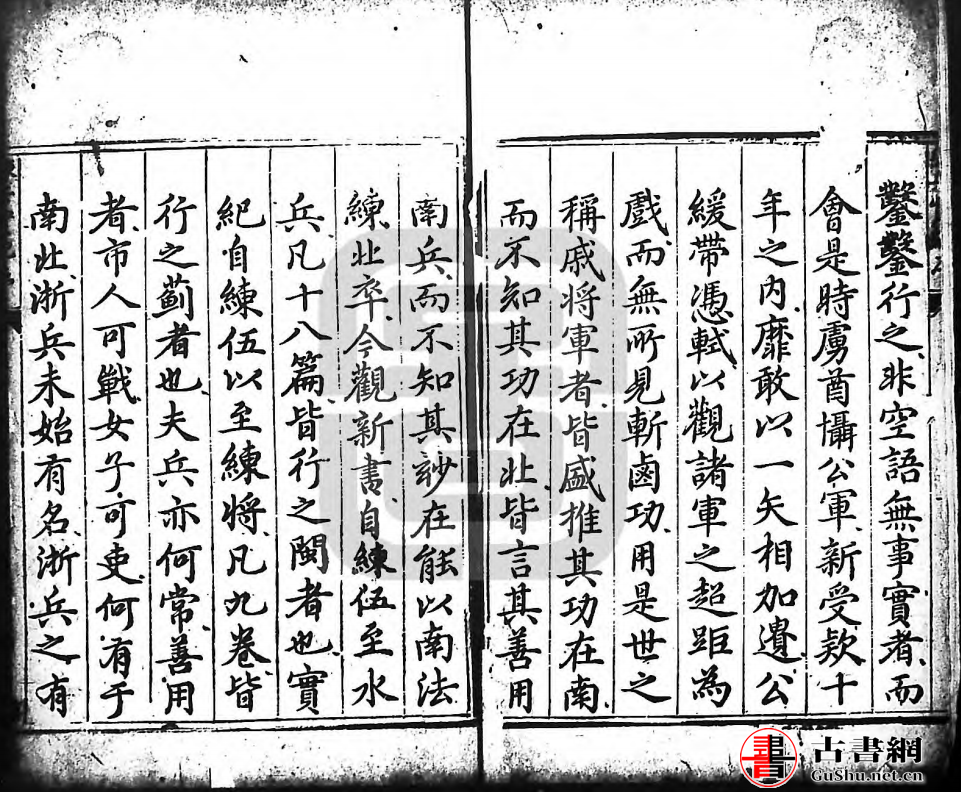 鑿鑿行之非空語無事實者而
會是時虜酋懾公軍新受欵十
年之內靡敢以一矢相加遺公
緩帶憑軾以觀諸軍之超距為
戲而無所見斬鹵功用是世之
稱戚将軍者皆盛推其功在南
而不知其功在北皆言其善用
南兵而不知其妙在能以南法
練北卒今觀新書自練伍至水
兵凡十八篇皆行之閩者也實
紀自練伍以至練將凡九卷皆
行之薊者也夫兵亦何常善用
者市人可戰女子可吏何有于
南北浙兵未始有名浙兵之有
古書網
GuShu.net.cn